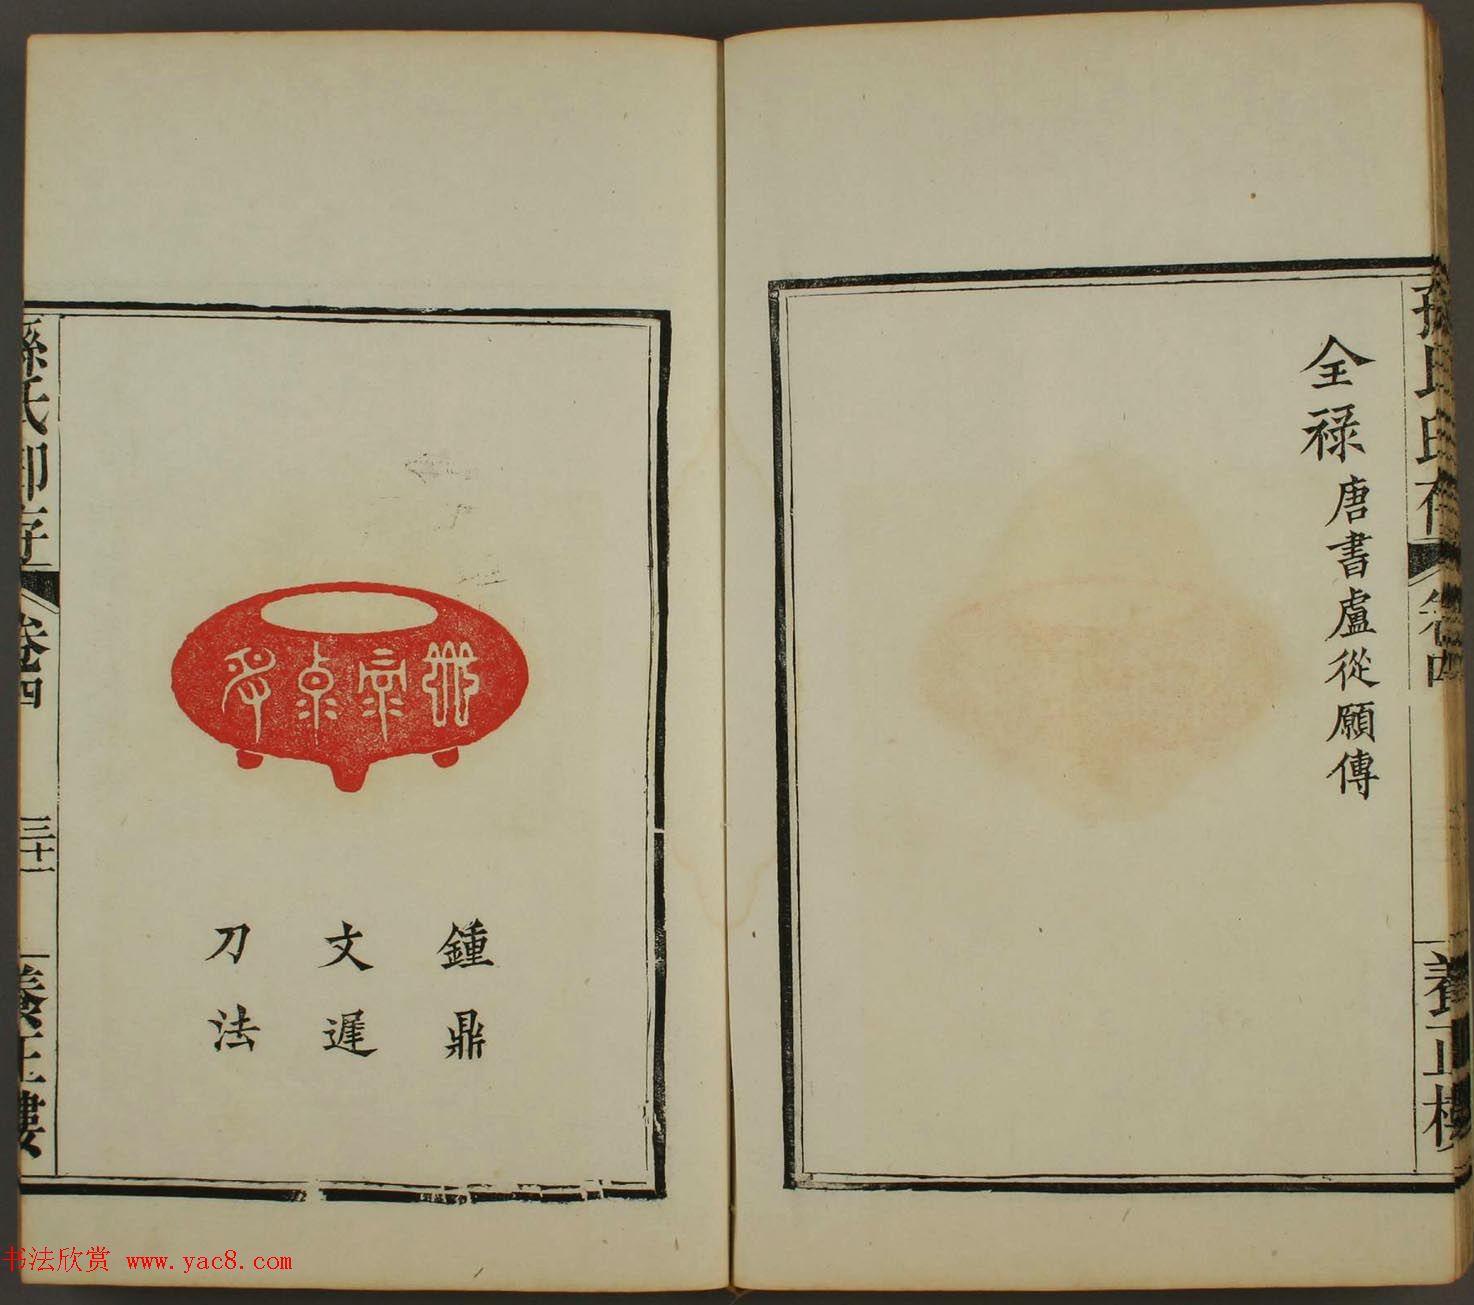 孫氏印存
卷四
養正樓
全祿唐書盧從願傳
鍾鼎
文遲
刀法
孫氏印存
卷四
三十一
養正樓
书法欣赏 www.yac8.com